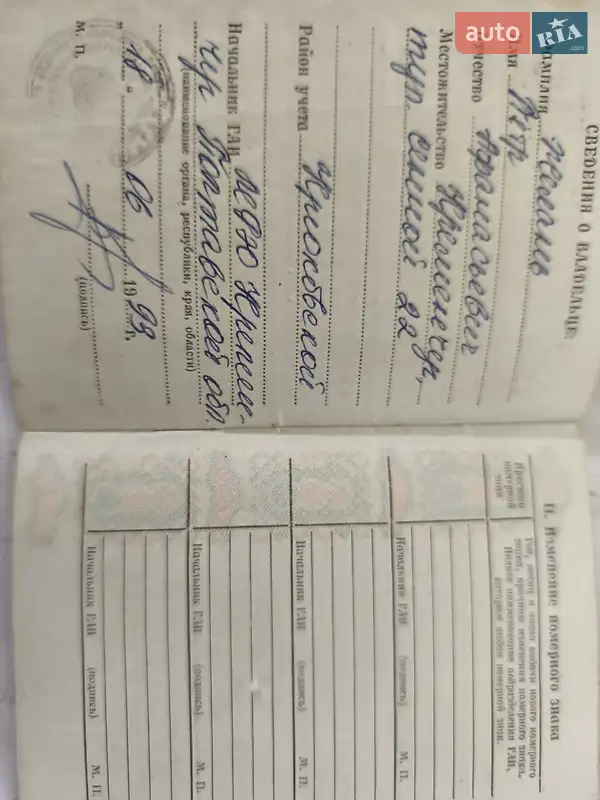 auto RIA .com
СВЕДЕНИЯ О ВЛАДЕЛЬЦЕ:
Фамилия
Имя Петр
Отчество Афанасьевич
Местожительство Кременчуг,
туп. Сенной 22
Район учета Крюковской
Начальник ГАИ
Полтавской обл.
(наименование органа, республики, края, области)
М. П.
"18" 06 1993 г.
(подпись)
II. Изменение номерного знака
Прежний номерной знак
Год, месяц и число выдачи нового номерного
знака, причина изменения номерного знака.
Полное наименование подразделения ГАИ,
которым выдан номерной знак.
Начальник ГАИ (подпись) М. П.
Начальник ГАИ (подпись) М. П.
Начальник ГАИ (подпись) М. П.
Начальник ГАИ (подпись) М. П.